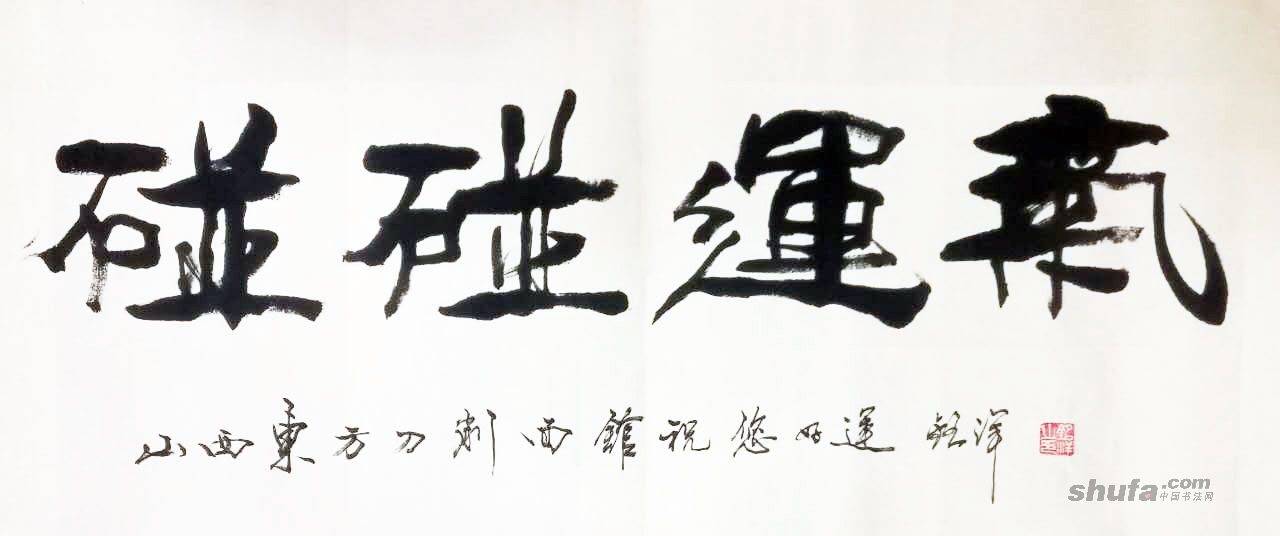 碰碰運氣
山西東方刀削面館祝您好運 銘洋
shufa.com
中国书法网